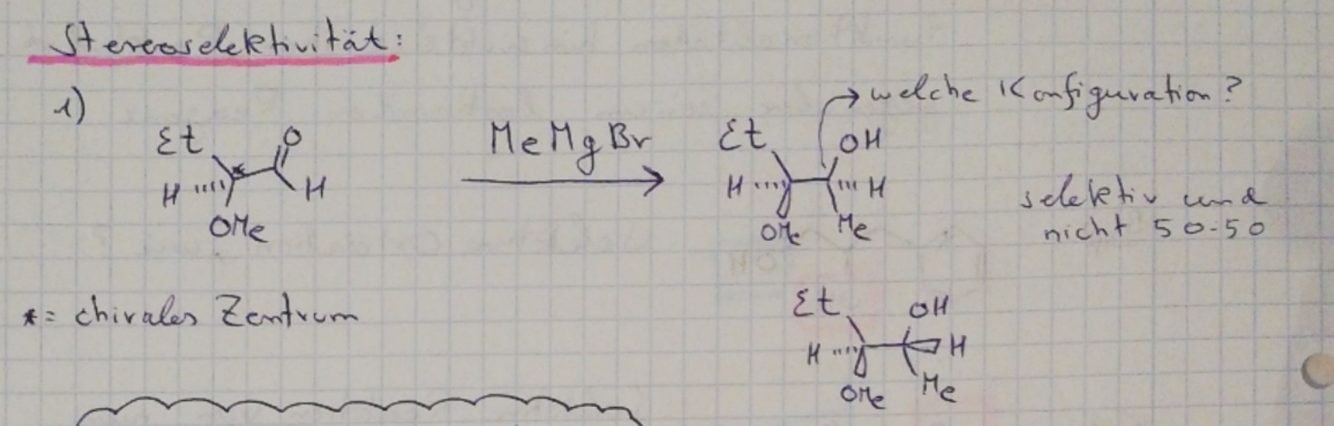 Stereoselektivität:
1)
Et O
H H
OMe
MeMgBr
→ welche Konfiguration?
Et OH
H H
OMe Me
selektiv und
nicht 50:50
* = chirales Zentrum
Et OH
H H
OMe Me